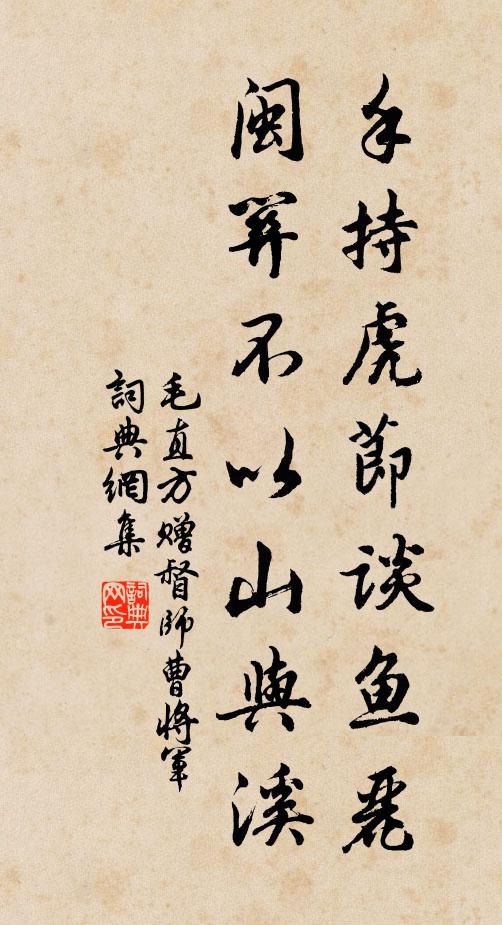 手持虎節談魚麗
閩筭不以山與溪
毛直方贈督師曹將軍
詞典網集
詞典网印